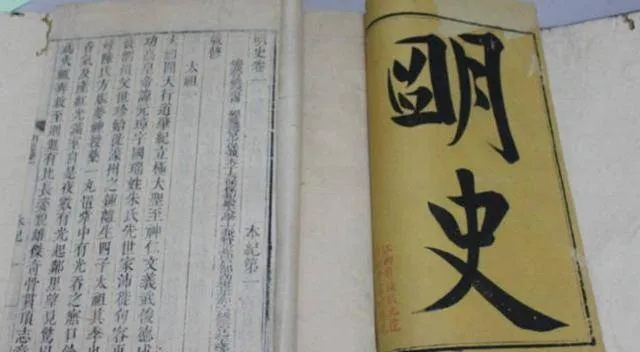 明史
明史卷一
本紀第一
敕修
太祖
太祖開天行道肇紀立極大聖至神仁文義武俊德成
功高皇帝諱元璋字國瑞姓朱氏先世家沛徙句容再
徙泗州父世珍始徙濠州之鍾離生四子太祖其季也
母陳氏方娠夢神授藥一丸置掌中有光吞之寤口餘
香氣及產紅光滿室自是夜數有光起鄰里望見驚以
為火輒奔救至則無有比長姿貌雄傑奇骨貫頂志意
本紀一